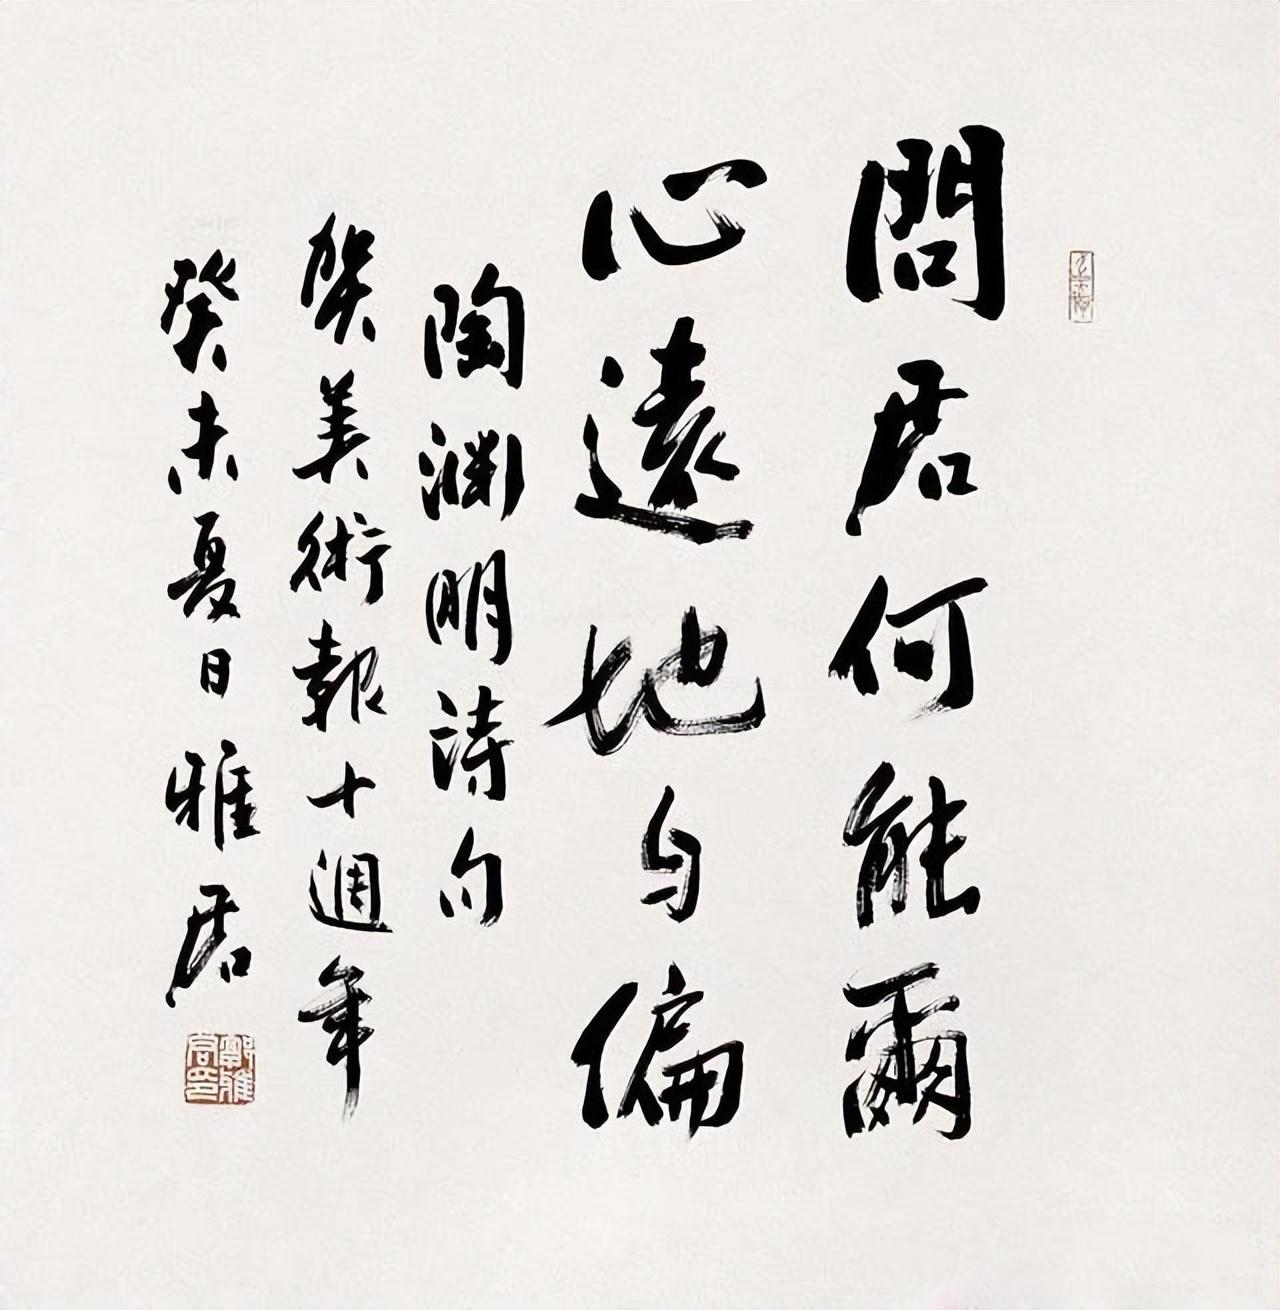 問君何能爾
心遠地自偏
陶渊明詩句
賀美術報十週年
癸未夏日雅君
鄭雅君印